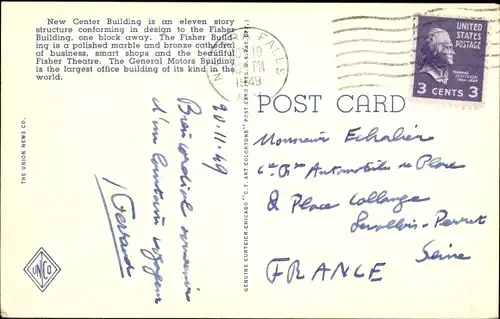 New Center Building is an eleven story
structure conforming in design to the Fisher
Building, one block away. The Fisher Build-
ing is a polished marble and bronze cathedral
of business, smart shops and the beautiful
Fisher Theatre. The General Motors Building
is the largest office building of its kind in the
world.
THE UNION NEWS CO.
UNCO
20.11.49
Bien cordial souvenir
d'un lointain voyageur
GENUINE CURTEICH-CHICAGO "C.T. ART-COLORTONE" POST CARD
FALLS
10
PM
1949
UNITED
STATES
POSTAGE
3 CENTS 3
POST CARD
Monsieur Echalier
Automobiles de Place
2 Place Collange
Levallois-Perret
Seine
FRANCE